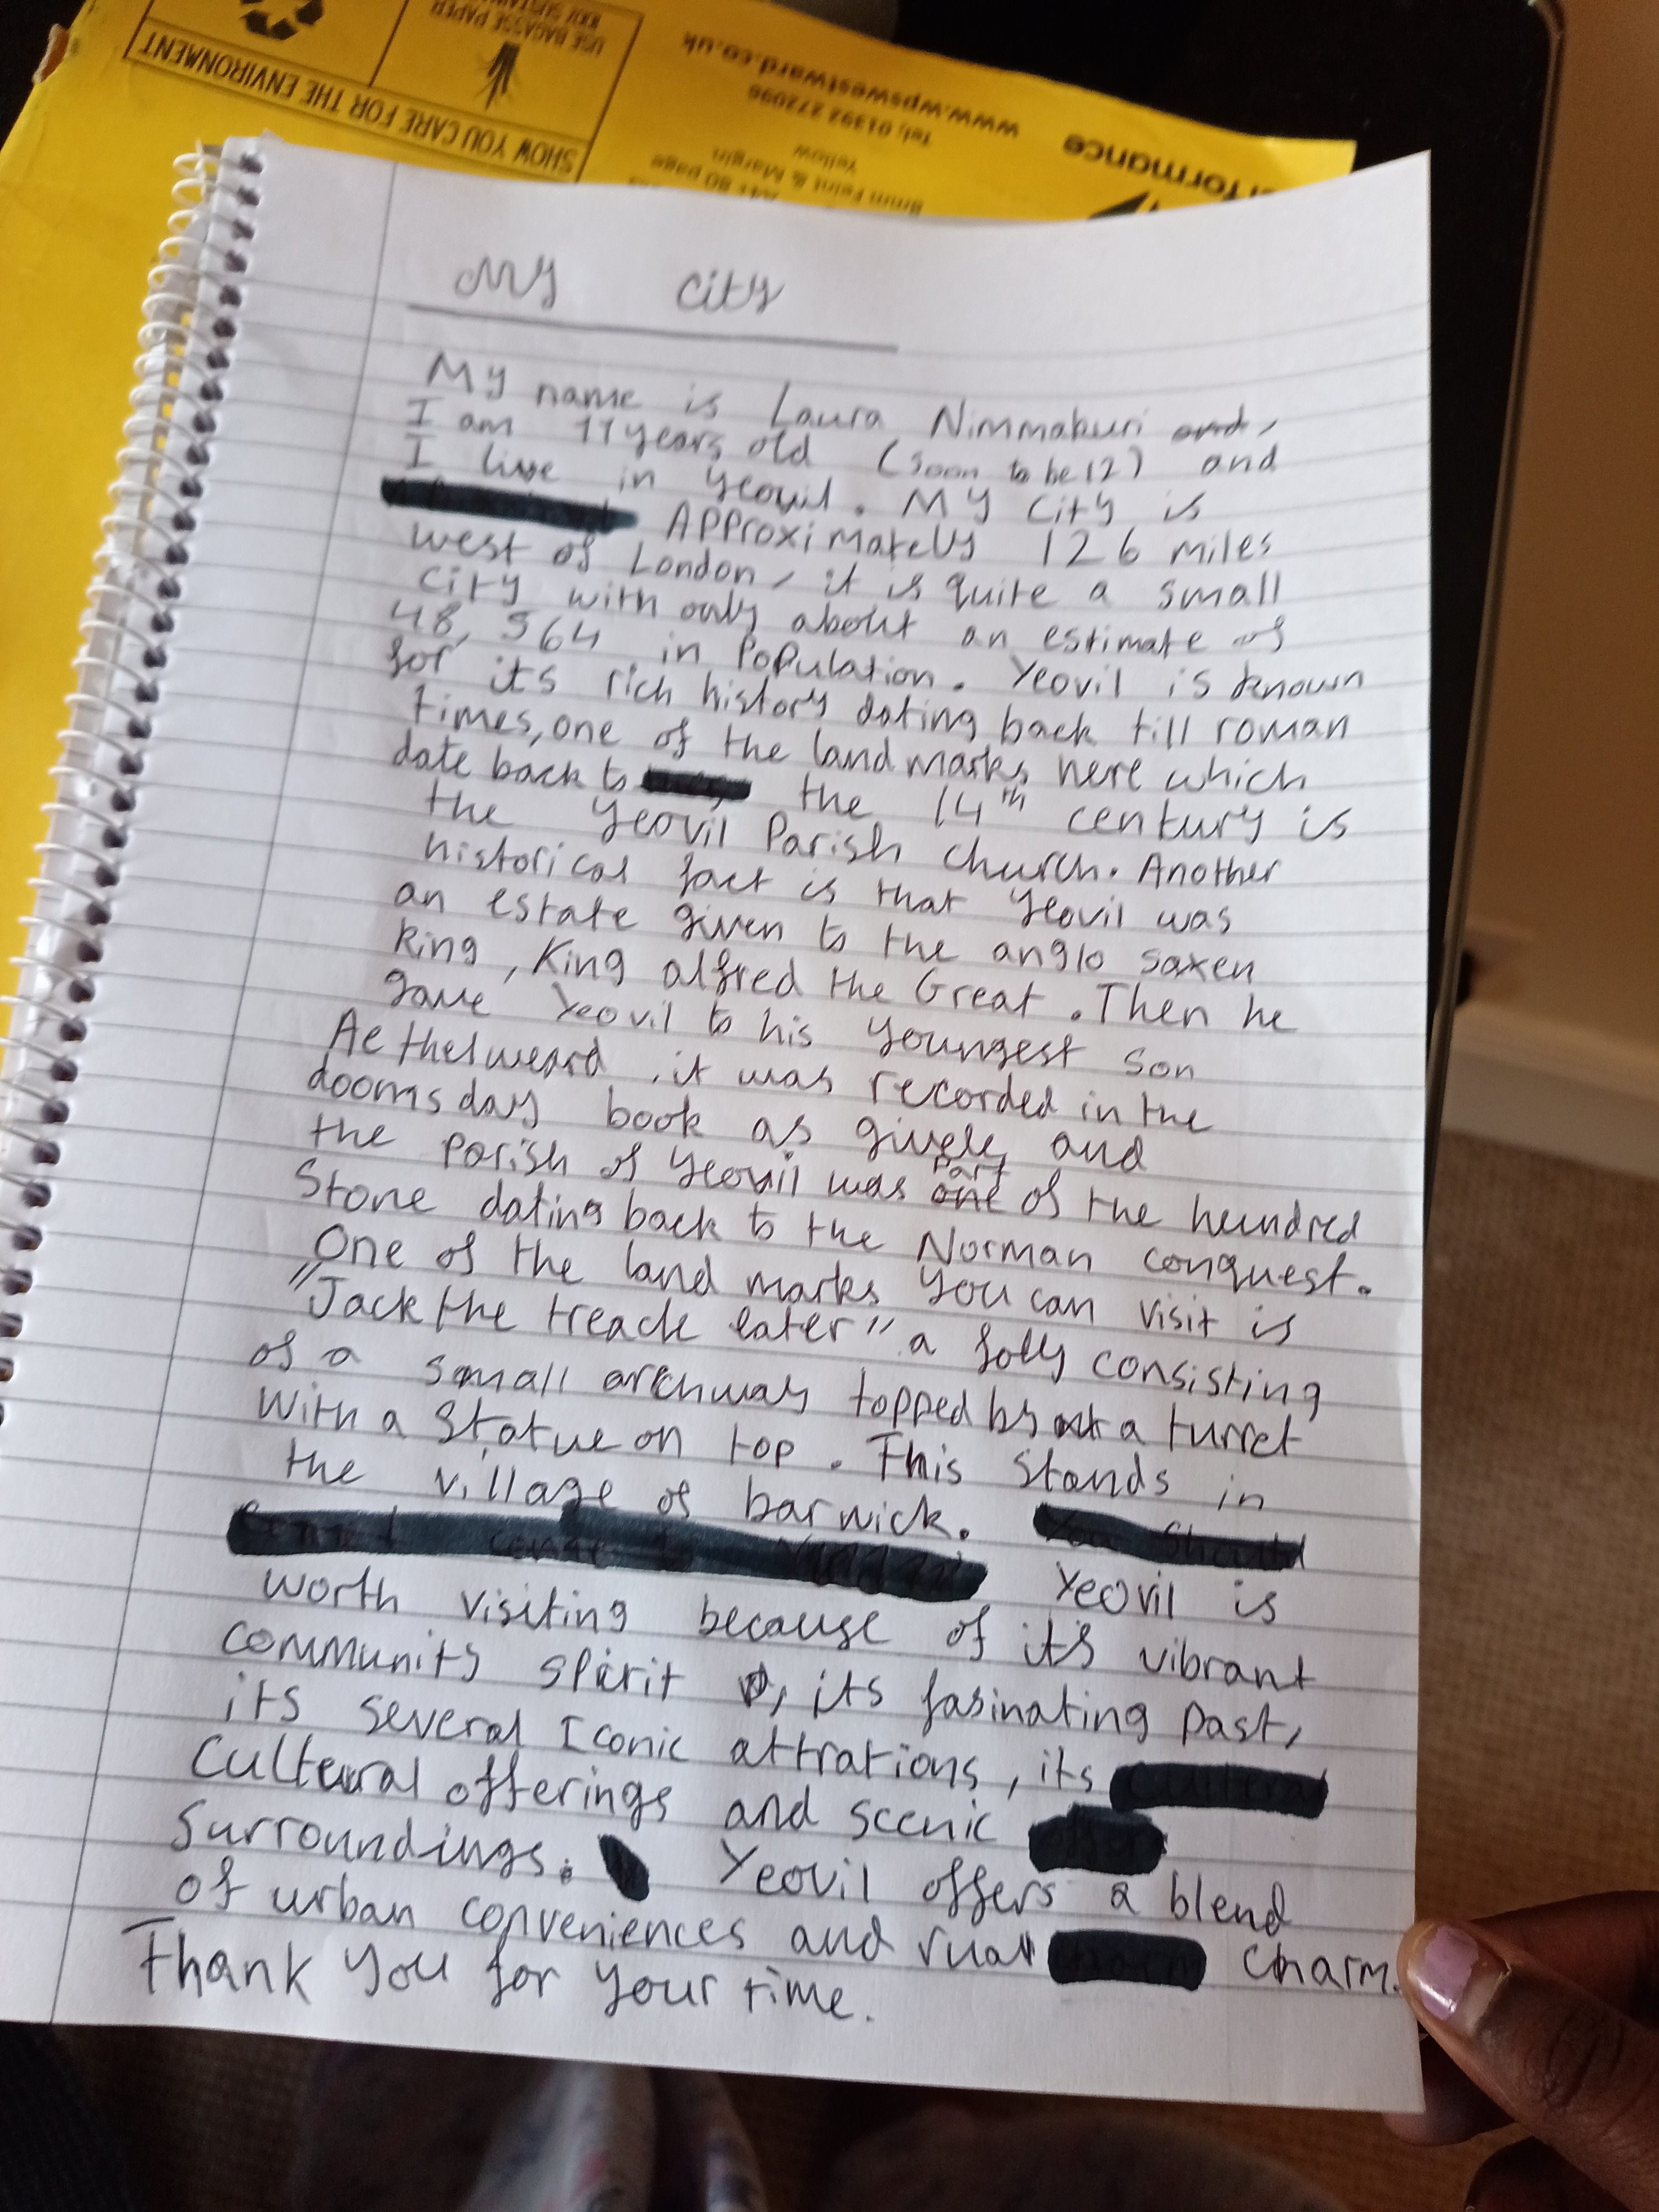 USE BAGASSE PAPER
SHOW YOU CARE FOR THE ENVIRONMENT
www.wpswestward.co.uk
Tel: 01392 272096
Yellow
8mm Feint & Margin
80 page
formance
My City
My name is Laura Nimmakuri and,
I am 11 years old (soon to be 12) and
I live in Yeovil. My city is
Approximately 126 miles
west of London, it is quite a small
city with only about an estimate of
48, 564 in Population. Yeovil is known
for its rich history dating back till roman
times, one of the land marks here which
date back to the 14th century is
the Yeovil Parish church. Another
historical fact is that Yeovil was
an estate given to the anglo saxen
king, King alfred the Great. Then he
gave Yeovil to his youngest son
Aethelweard, it was recorded in the
dooms day book as givele and
the parish of Yeovil was one part of the hundred
Stone dating back to the Norman conquest.
One of the land marks you can visit is
"Jack the treacle eater" a folly consisting
of a small archway topped by a turret
With a Statue on top. This Stands in
the village of barwick. You Should
Yeovil is
worth visiting because of it's vibrant
community spirit, its fasinating past,
its several Iconic attrations, its
Cultural offerings and scenic
Surroundings. Yeovil offers a blend
of urban conveniences and rual charm.
Thank you for your time.